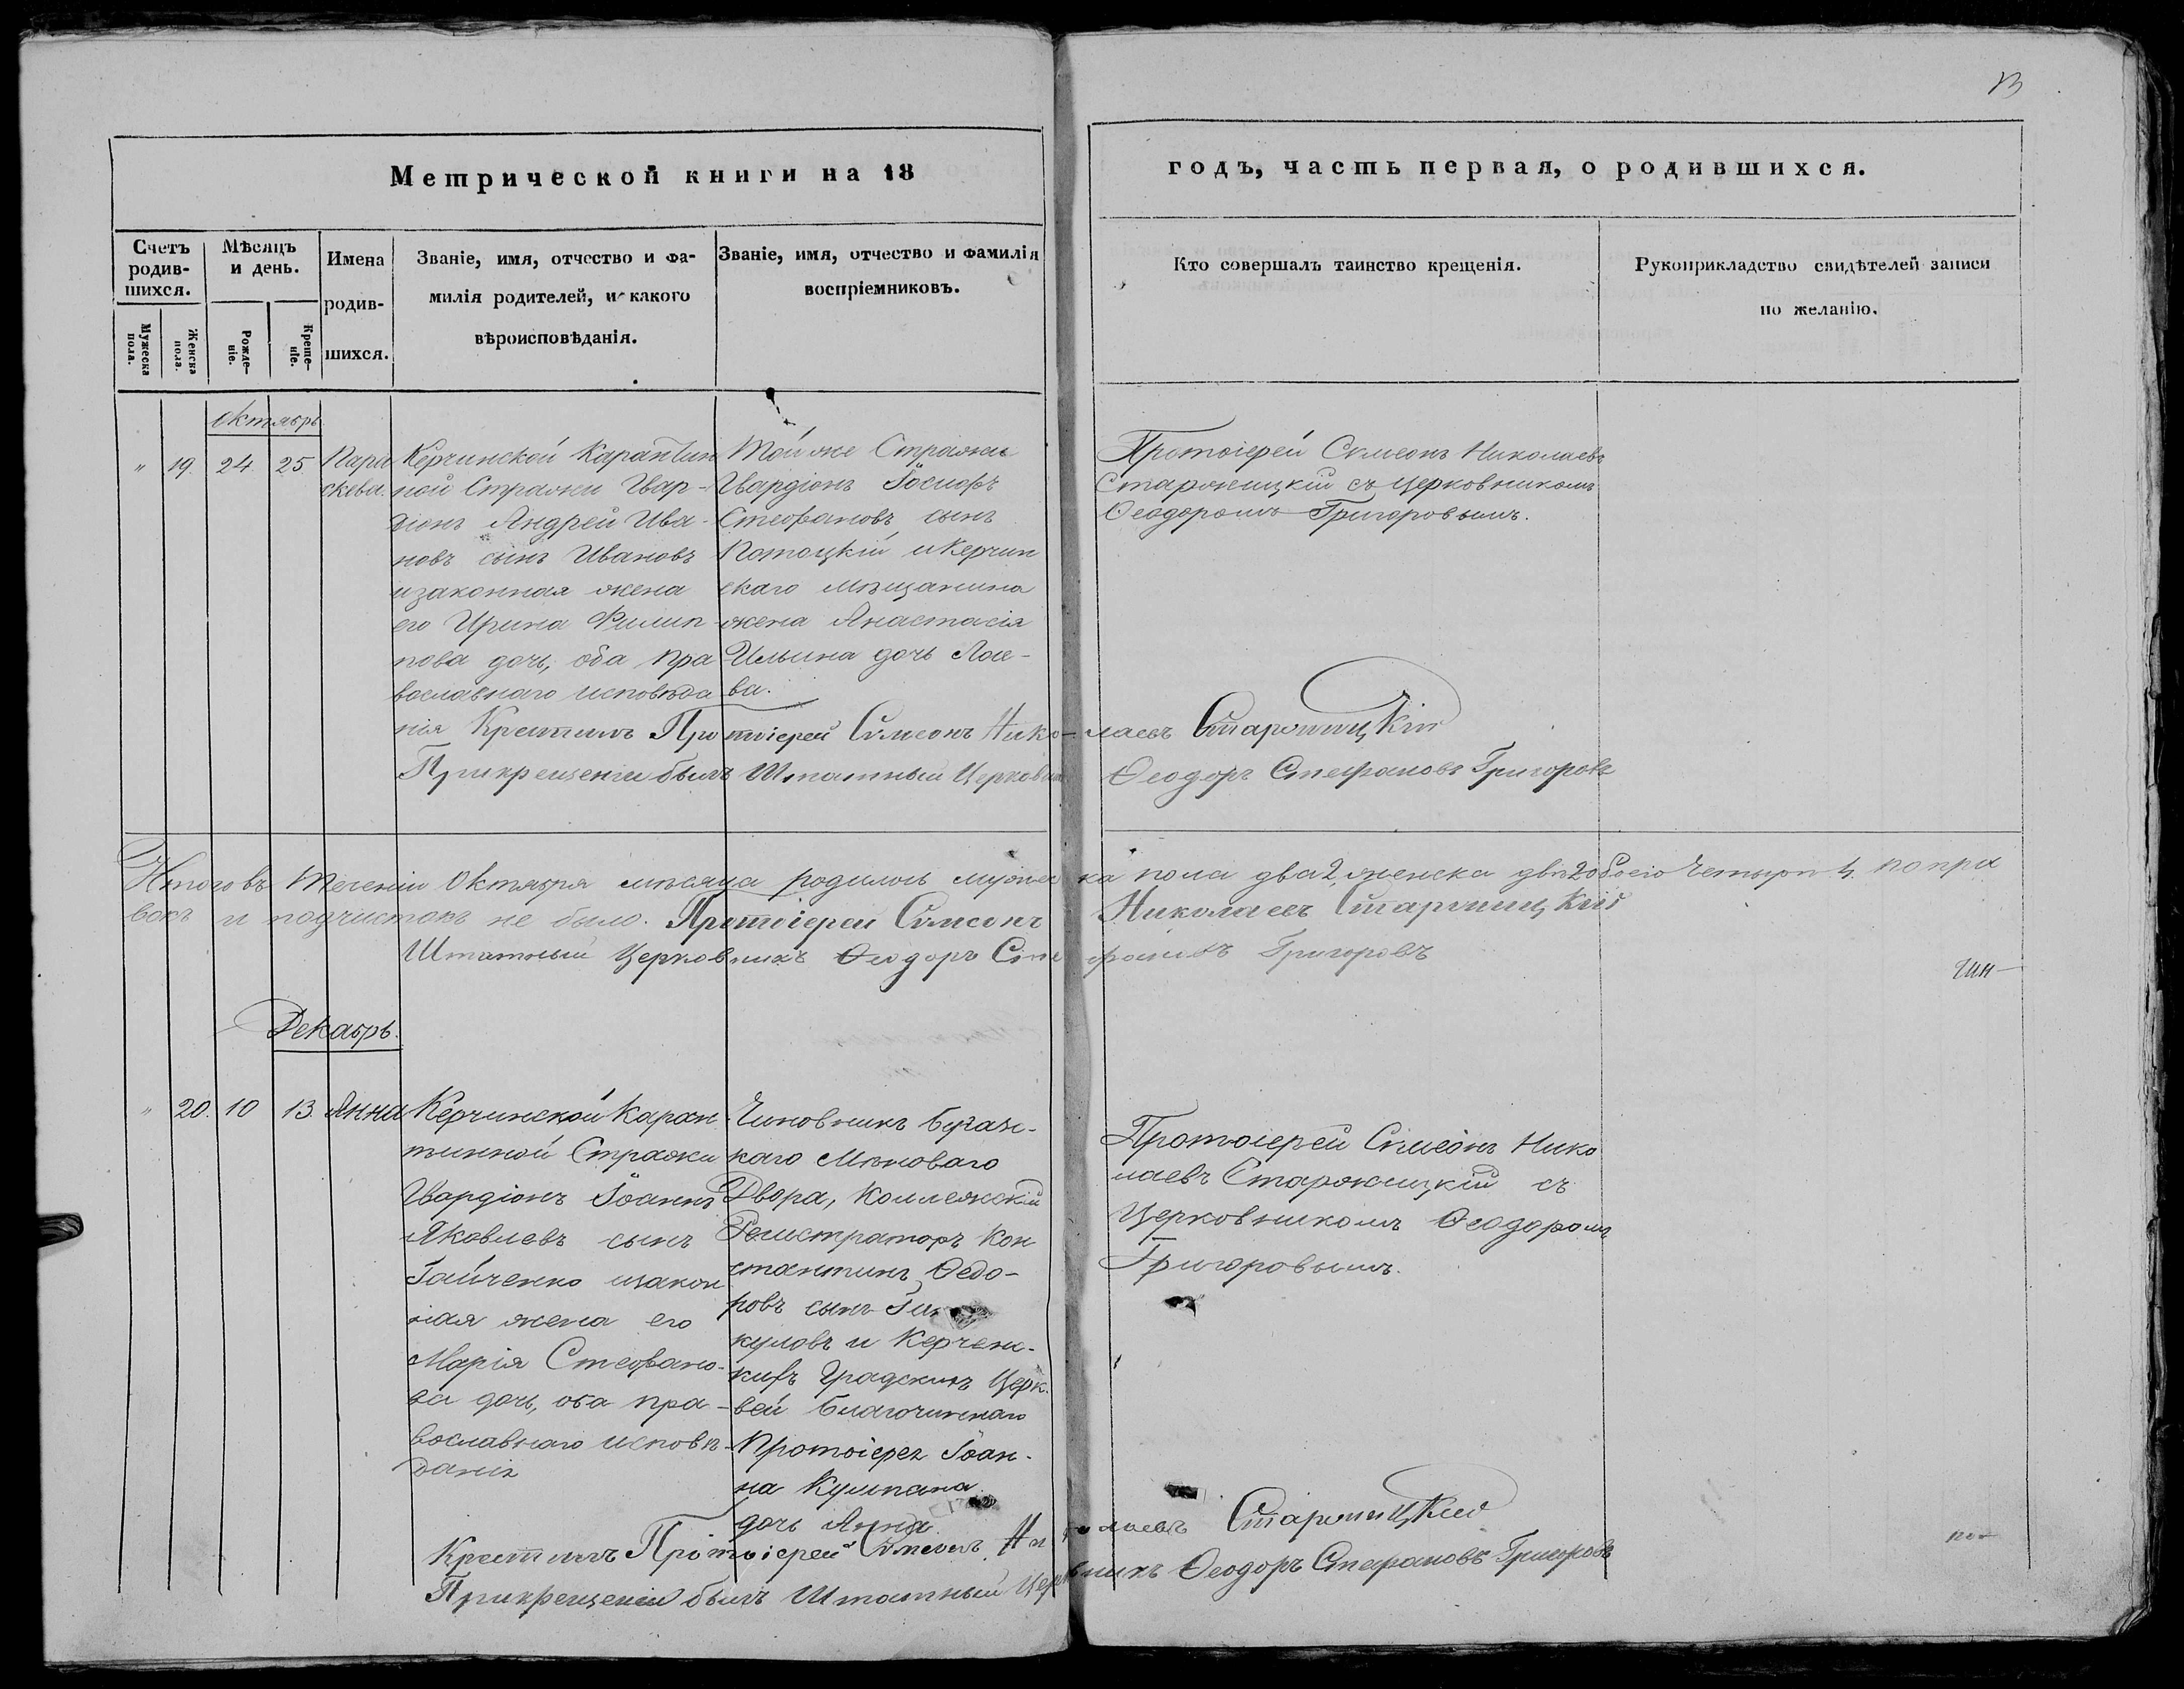 13
Метрической книги на 18
годъ, часть первая, о родившихся.
Счетъ родив-шихся.
Мужеска пола.
Женска пола.
Мѣсяцъ и день.
Рожде-ніе.
Креще-ніе.
Имена
родив-
шихся.
Званіе, имя, отчество и фа-
милія родителей, и какого
вѣроисповѣданія.
Званіе, имя, отчество и фамилія
воспріемниковъ.
Кто совершалъ таинство крещенія.
Рукоприкладство свидѣтелей записи
по желанію.
Октябрь
" 19. 24. 25.
Пара
скева.
Керчинской Карантин
ной Стражи Гвар-
діонъ Андрей Ива-
новъ сынъ Ивановъ
изаконная жена
его Ирина Филип
пова дочь, оба пра
вославнаго исповѣда
нія
Той же Стражи
Гвардіонъ Іосифъ
Стефановъ сынъ
Потоцкій и Керчин
скаго мѣщанина
жена Анастасія
Ильина дочь Лое-
ва.
Протоіерей Симеонъ Николаевъ
Старожицкій съ Церковникомъ
Ѳеодоромъ Григоровымъ.
Крестилъ Протоіерей Симеонъ Николаевъ Старожицкій
Прикрещеніи былъ Штатный Церковник Ѳеодоръ Стефановъ Григоровъ
Итого въ теченіи Октября мѣсяца родилось мужеска пола два 2, женска двѣ 2 обоего четыре 4 по пра
вокъ и подчистокъ не было. Протоіерей Симеонъ Николаевъ Старожицкій
Штатный Церковникъ Ѳеодоръ Стефановъ Григоровъ
чин-
Декабрь.
" 20. 10 13. Анна
Керчинской Каран
тинной Стражи
Гвардіонъ Іоаннъ
Яковлевъ сынъ
Гайченко изакон
ная жена его
Марія Стефано-
ва дочь, оба пра-
вославнаго исповѣ-
данія
Чиновникъ
каго Мѣноваго
Двора, Коллежскій
Регистраторъ Кон
стантинъ Ѳедо-
ровъ сынъ
куловъ и Керчен-
кихъ Градскихъ Церк.
вей Благочиннаго
Протоіерея Іоан-
на Кумпана
дочь Анна.
Протоіерей Симеонъ Нико
лаевъ Старожицкій съ
Церковникомъ Ѳеодоромъ
Григоровымъ.
Крестилъ Протоіерей Симеонъ Николаевъ Старожицкій
по-
Прикрещеніи былъ Штатный Церковникъ Ѳеодоръ Стефановъ Григоровъ